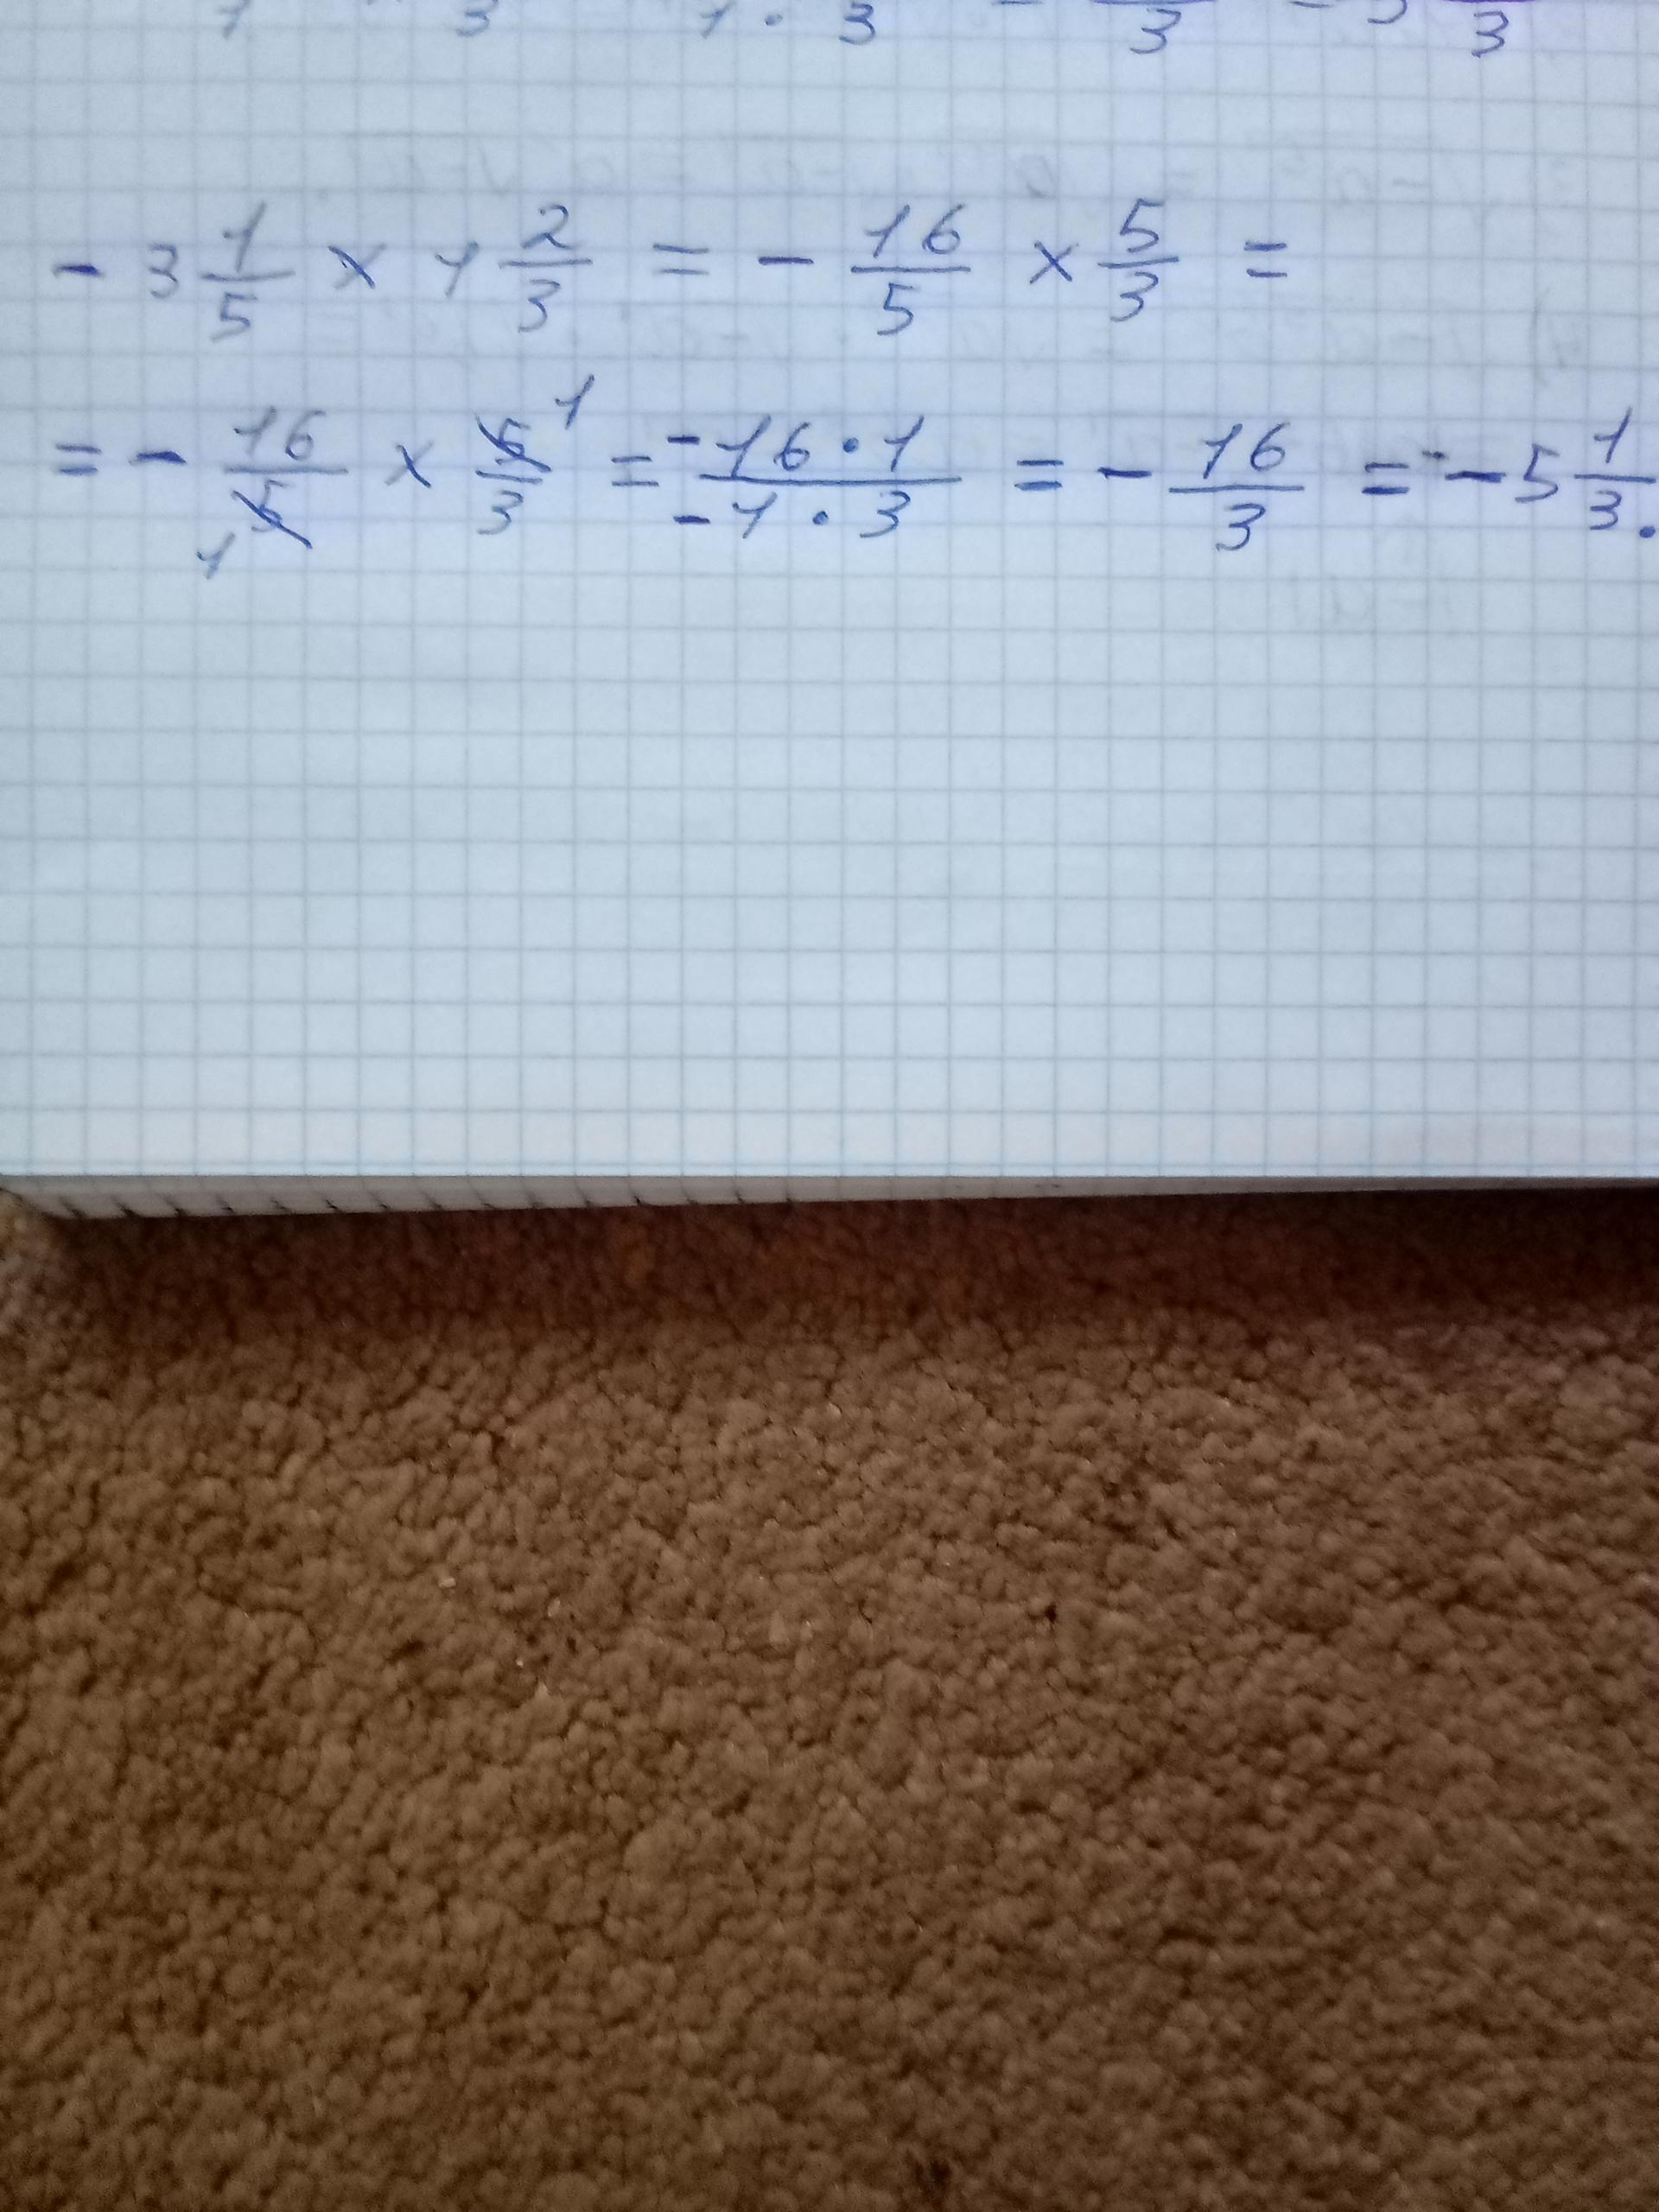 1 3 1 · 3 3 3
- 3 1/5 × 1 2/3 = - 16/5 × 5/3 =
= - 16/5 1 × 5/3 1 = -16·1/-1·3 = - 16/3 = - 5 1/3.